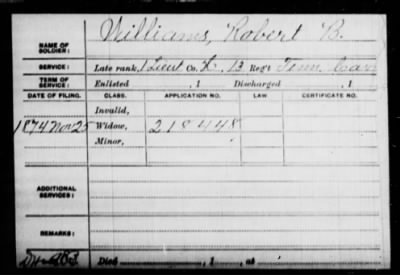 Williams, Robert B.
NAME OF SOLDIER:
SERVICE: Late rank, 1 Lieut Co. K, 13 Reg't Tenn. Cav
TERM OF SERVICE: Enlisted , 1 Discharged , 1
DATE OF FILING. CLASS. APPLICATION NO. LAW CERTIFICATE NO.
Invalid,
1874 Nov 25 Widow, 218448
Minor,
ADDITIONAL SERVICES:
REMARKS:
Died , 1 , at